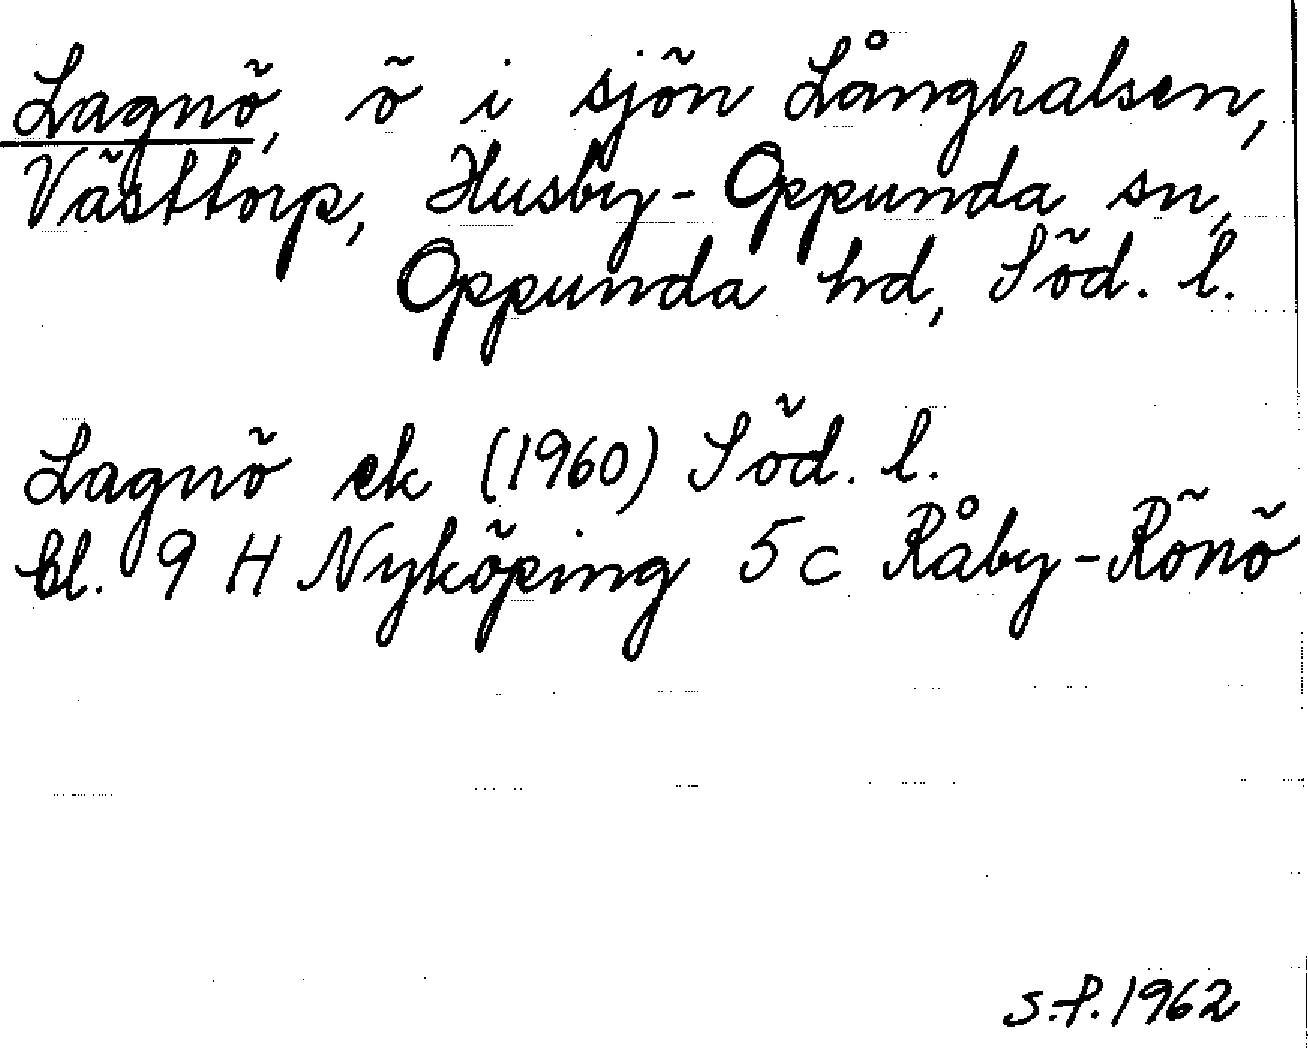 Lagnö, ö i sjön Långhalsen,
Västtorp, Husby-Oppunda sn,
Oppunda hd, Söd. l.
Lagnö ek (1960) Söd. l.
bl. 9 H Nyköping 5 c Råby-Rönö
S.-P. 1962